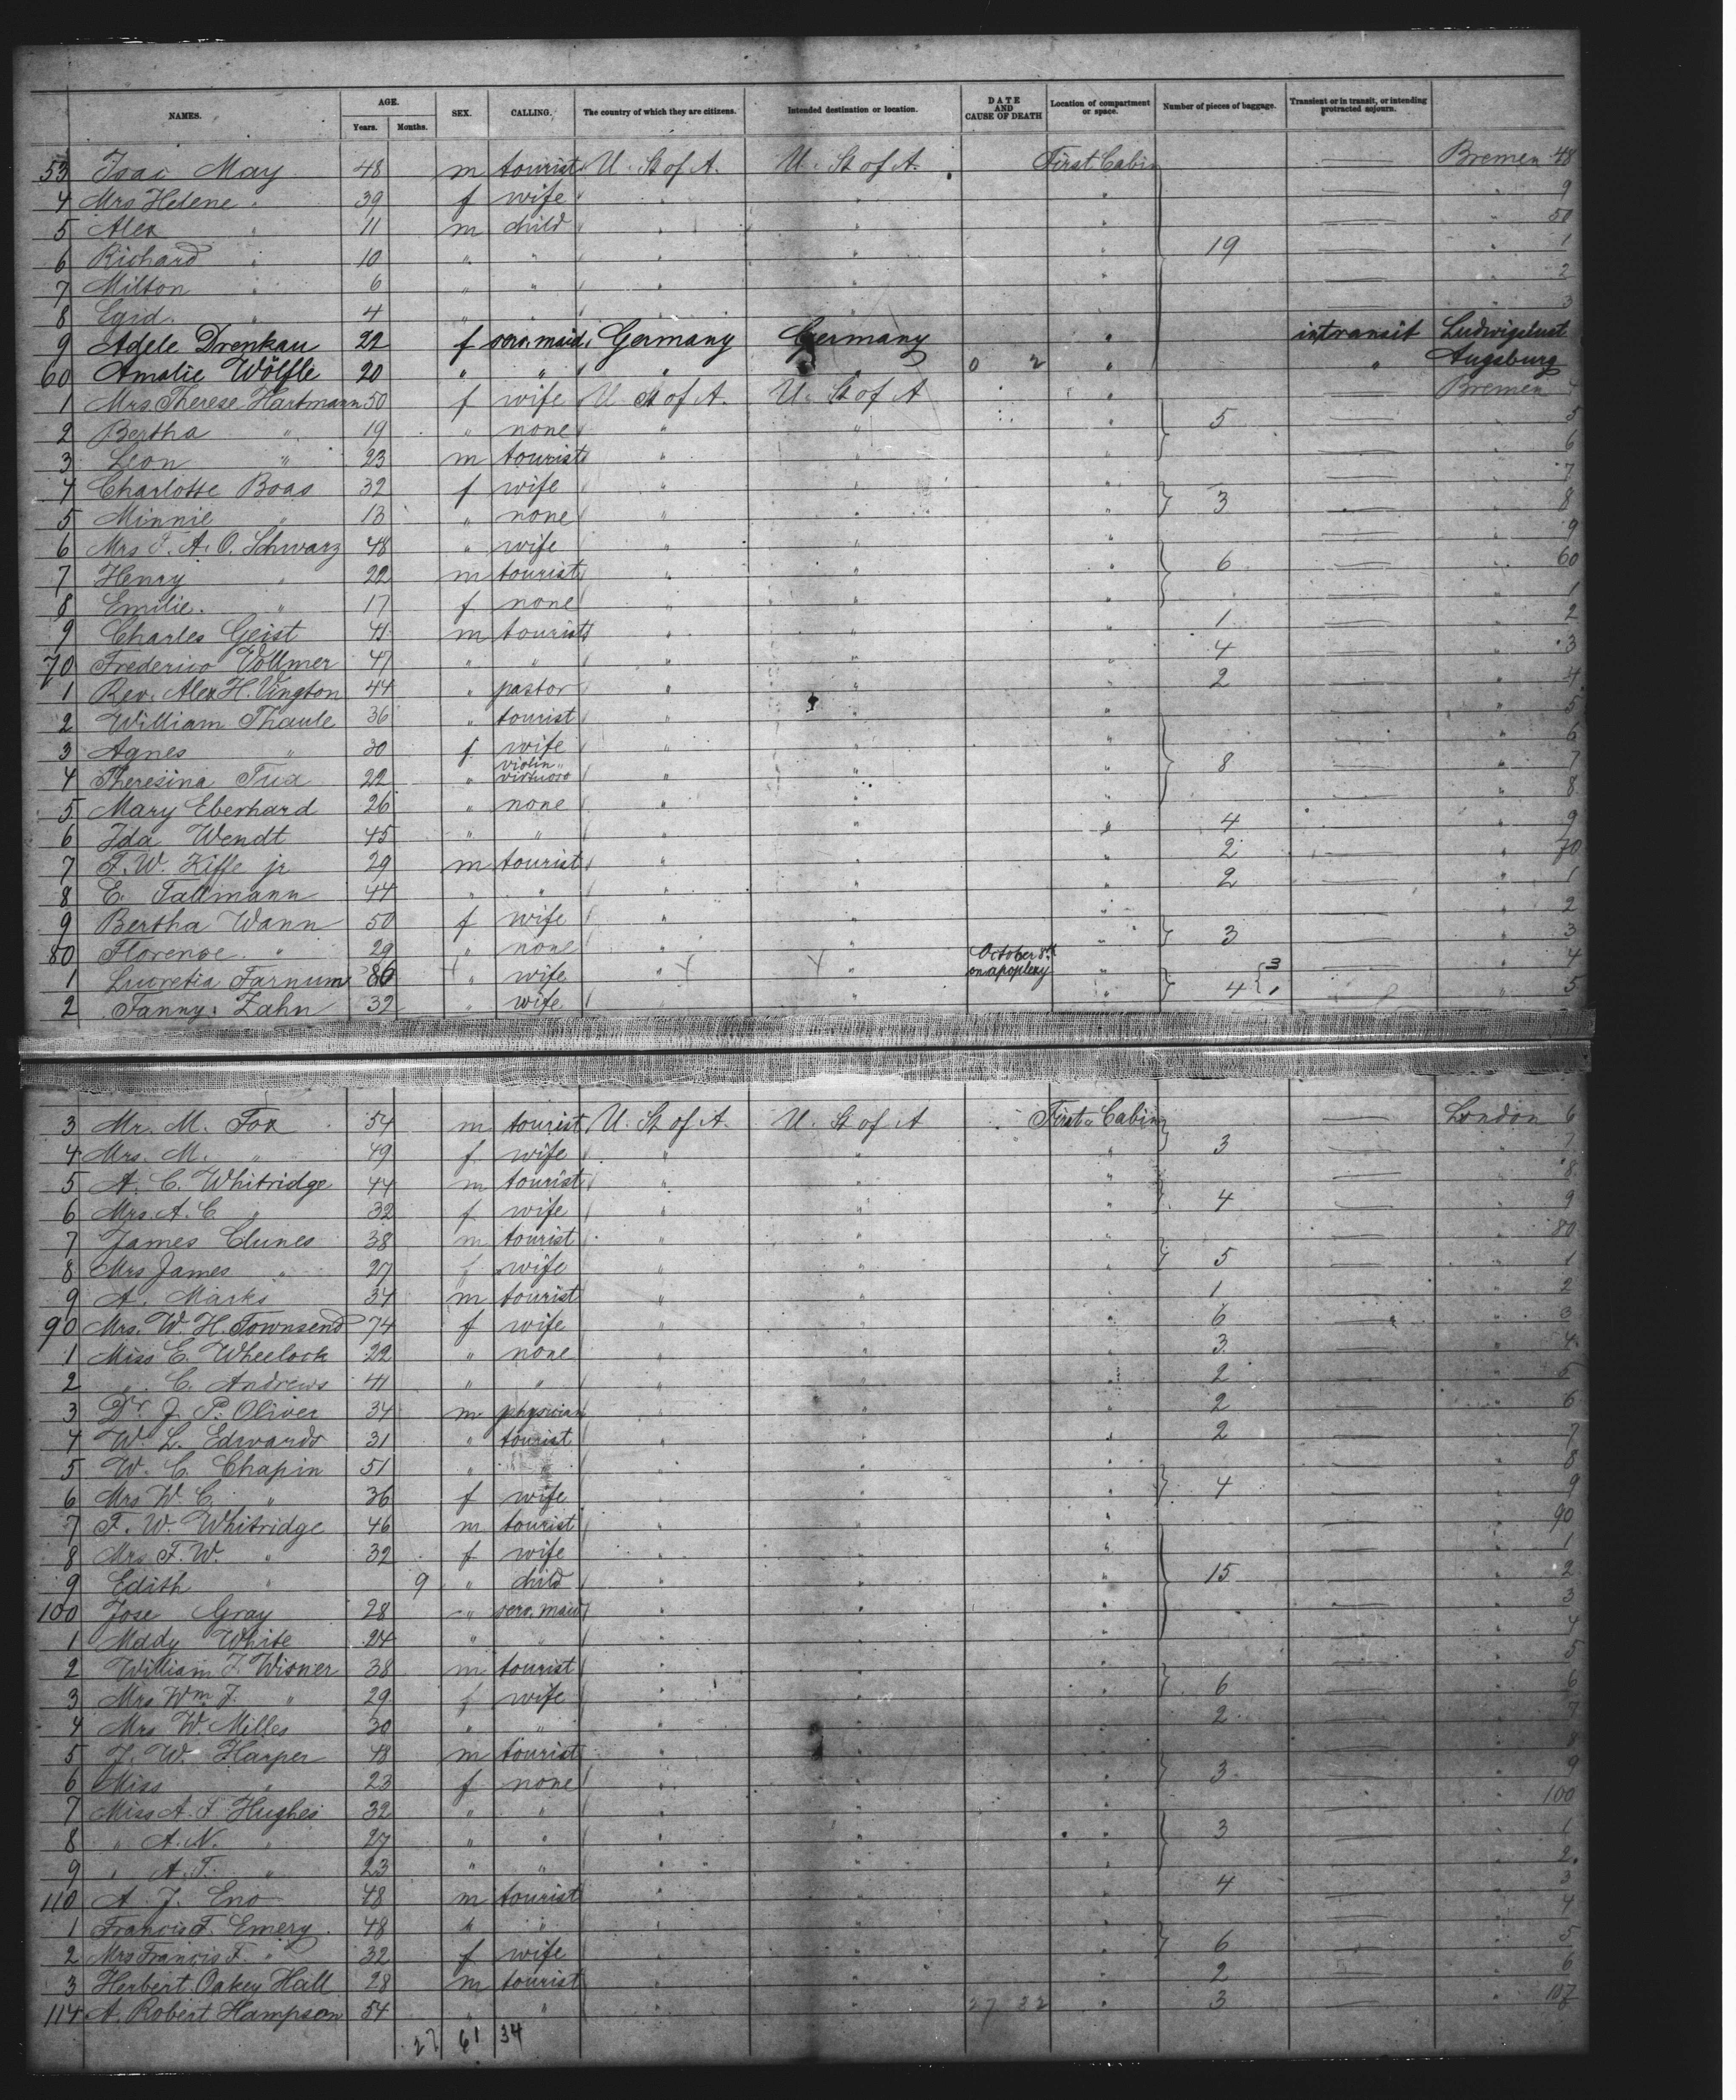 NAMES. AGE. Years. Months. SEX. CALLING. The country of which they are citizens. Intended destination or location. DATE AND CAUSE OF DEATH Location of compartment or space. Number of pieces of baggage. Transient or in transit, or intending protracted sojourn.
53 Isac May 48 m tourist U. St of A. U. St of A. First Cabin — Bremen 48
4 Mrs Helene " 39 f wife " " " — " 9
5 Alex " 11 m child " " " — " 50
6 Richard " 10 " " " " " 19 — " 1
7 Milton " 6 " " " " " — " 2
8 Egid. " 4 " " " " " — " 3
9 Adele Drenkau 22 f serv. maid Germany Germany " intransit Ludwigslust
60 Amalie Wölfle 20 " " " " 0 2 " " Augsburg
1 Mrs Therese Hartmann 50 f wife U. St of A. U. St of A " — Bremen 4
2 Bertha " 19 " none " " " 5 — " 5
3 Leon " 23 m tourist " " " — " 6
4 Charlotte Boas 32 f wife " " " — " 7
5 Minnie " 13 " none " " " 3 — " 8
6 Mrs F. A. O. Schwarz 48 " wife " " " — " 9
7 Henry " 22 m tourist " " " 6 — " 60
8 Emilie. " 17 f none " " " — " 1
9 Charles Geist 41 m tourist " " " 1 — " 2
70 Frederico Vollmer 47 " " " " " 4 — " 3
1 Rev. Alex H. Vington 44 " pastor " " " 2 — " 4
2 William Thaule 36 " tourist " " " — " 5
3 Agnes " 30 f wife " " " — " 6
4 Theresina Tua 22 " violin virtuoso " " " 8 — " 7
5 Mary Eberhard 26 " none " " " — " 8
6 Ida Wendt 45 " " " " " 4 — " 9
7 F. W. Kiffe jr 29 m tourist " " " 2 — " 70
8 E. Tallmann 44 " " " " " 2 — " 1
9 Bertha Wann 50 f wife " " " — " 2
80 Florence. " 29 " none " " " 3 — " 3
1 Lucretia Farnum 86 " wife " " October 8th on apoplexy " — " 4
2 Fanny Zahn 32 " wife " " " 4 { 3 1 — " 5
3 Mr. M. Fox 54 m tourist U. St of A. U. St of A First Cabin — London 6
4 Mrs. M. " 49 f wife " " " 3 — " 7
5 A. C. Whitridge 44 m tourist " " " — " 8
6 Mrs. A. C. " 32 f wife " " " 4 — " 9
7 James Clunes 38 m tourist " " " — " 80
8 Mrs James " 27 f wife " " " 5 — " 1
9 A. Marks 34 m tourist " " " 1 — " 2
90 Mrs. W. H. Townsend 74 f wife " " " 6 — " 3
1 Miss E. Wheelock 22 " none " " " 3 — " 4
2 " C. Andrews 41 " " " " " 2 — " 5
3 Dr J. P. Oliver 34 m physician " " " 2 — " 6
4 W. L. Edwards 31 " tourist " " " 2 — " 7
5 W. C. Chapin 51 " " " " " — " 8
6 Mrs W. C. " 36 f wife " " " 4 — " 9
7 F. W. Whitridge 46 m tourist " " " — " 90
8 Mrs. F. W. " 32 f wife " " " — " 1
9 Edith " 9 " child " " " 15 — " 2
100 Jose Gray 28 " serv. maid " " " — " 3
1 Maddy White 24 " " " " " — " 4
2 William J. Wisner 38 m tourist " " " — " 5
3 Mrs Wm J. " 29 f wife " " " 6 — " 6
4 Mrs W. Milles 30 " " " " " 2 — " 7
5 J. W. Harper 48 m tourist " " " — " 8
6 Miss " 23 f none " " " 3 — " 9
7 Miss A. F. Hughes 32 " " " " " — " 100
8 " A. N. " 27 " " " " " 3 — " 1
9 " A. T. " 23 " " " " " — " 2
110 A. J. Eno 48 m tourist " " " 4 — " 3
1 Francis F. Emery 48 " " " " " — " 4
2 Mrs Francis F. " 32 f wife " " " 6 — " 5
3 Herbert Oakey Hall 28 m tourist " " " 2 — " 6
114 A. Robert Hampson 54 " " " " 27 32 " 3 — " 107
27 61 34